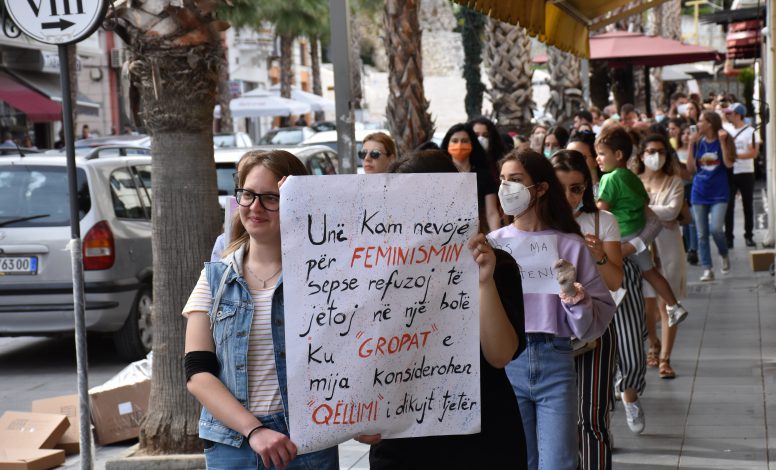 VIII
63 00
Unë kam nevojë
për FEMINISMIN
sepse refuzoj të
jetoj në një botë
Ku "GROPAT" e
mija konsiderohen
"QËLLIMI" i dikujt tjetër
MA